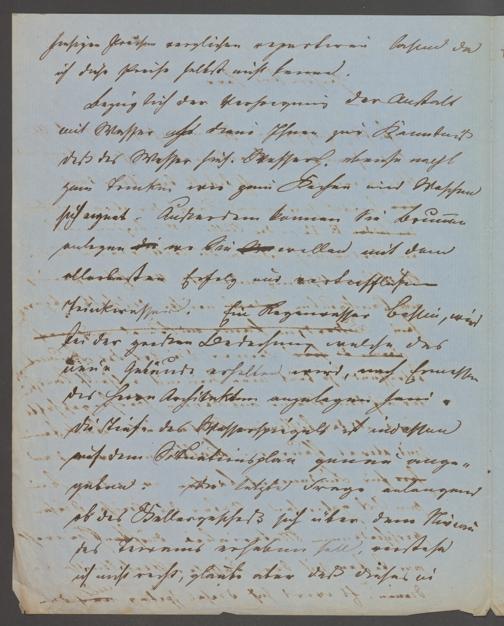 hiesigen Preisen verglichen repartiren lassen da
ich diese Preise selbst nicht kenne.
Bezüglich der Versorgung der Anstalt
mit Wasser diene Ihnen zur Kenntniß
daß das Wasser des Wassers, ebenso nicht
zum Trinken wie zum Kochen und Waschen
sich eignet. Außerdem können Sie Brunnen
anlegen wo Sie wollen mit dem
allerbesten Erfolg und vortrefflichem
Trinkwasser. Ein Regenwasser Bassin, wird
bei der großen Bedachung welche das
neue Gebäude erhalten wird, nach Ermessen
des Herrn Architekten anzulegen sein.
Die Tiefe des Wasserspiegels ist indessen
auf dem Situationsplan genau ange-
geben. Die letzte Frage anlangend
ob das Kellergeschoß sich über dem Niveau
des Terrains erheben soll, verstehe
ich nicht recht, glaube aber daß dieses in